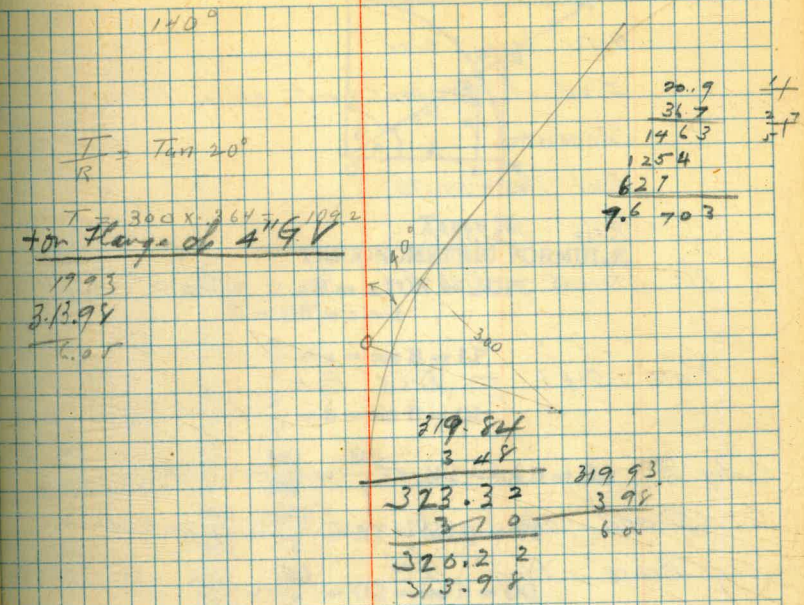 140°
T/R = Tan 20°
T = 300 x .364 = 109.2
+ on Flange of 4" G V
19 93
3.13.98
6.05
40°
300
20.9
36.7
14 6 3
12 5 4
6 2 7
7.6 7 0 3
319.84
3 48
323.32
3 1 0
320.22
313.98
319.93
3 98